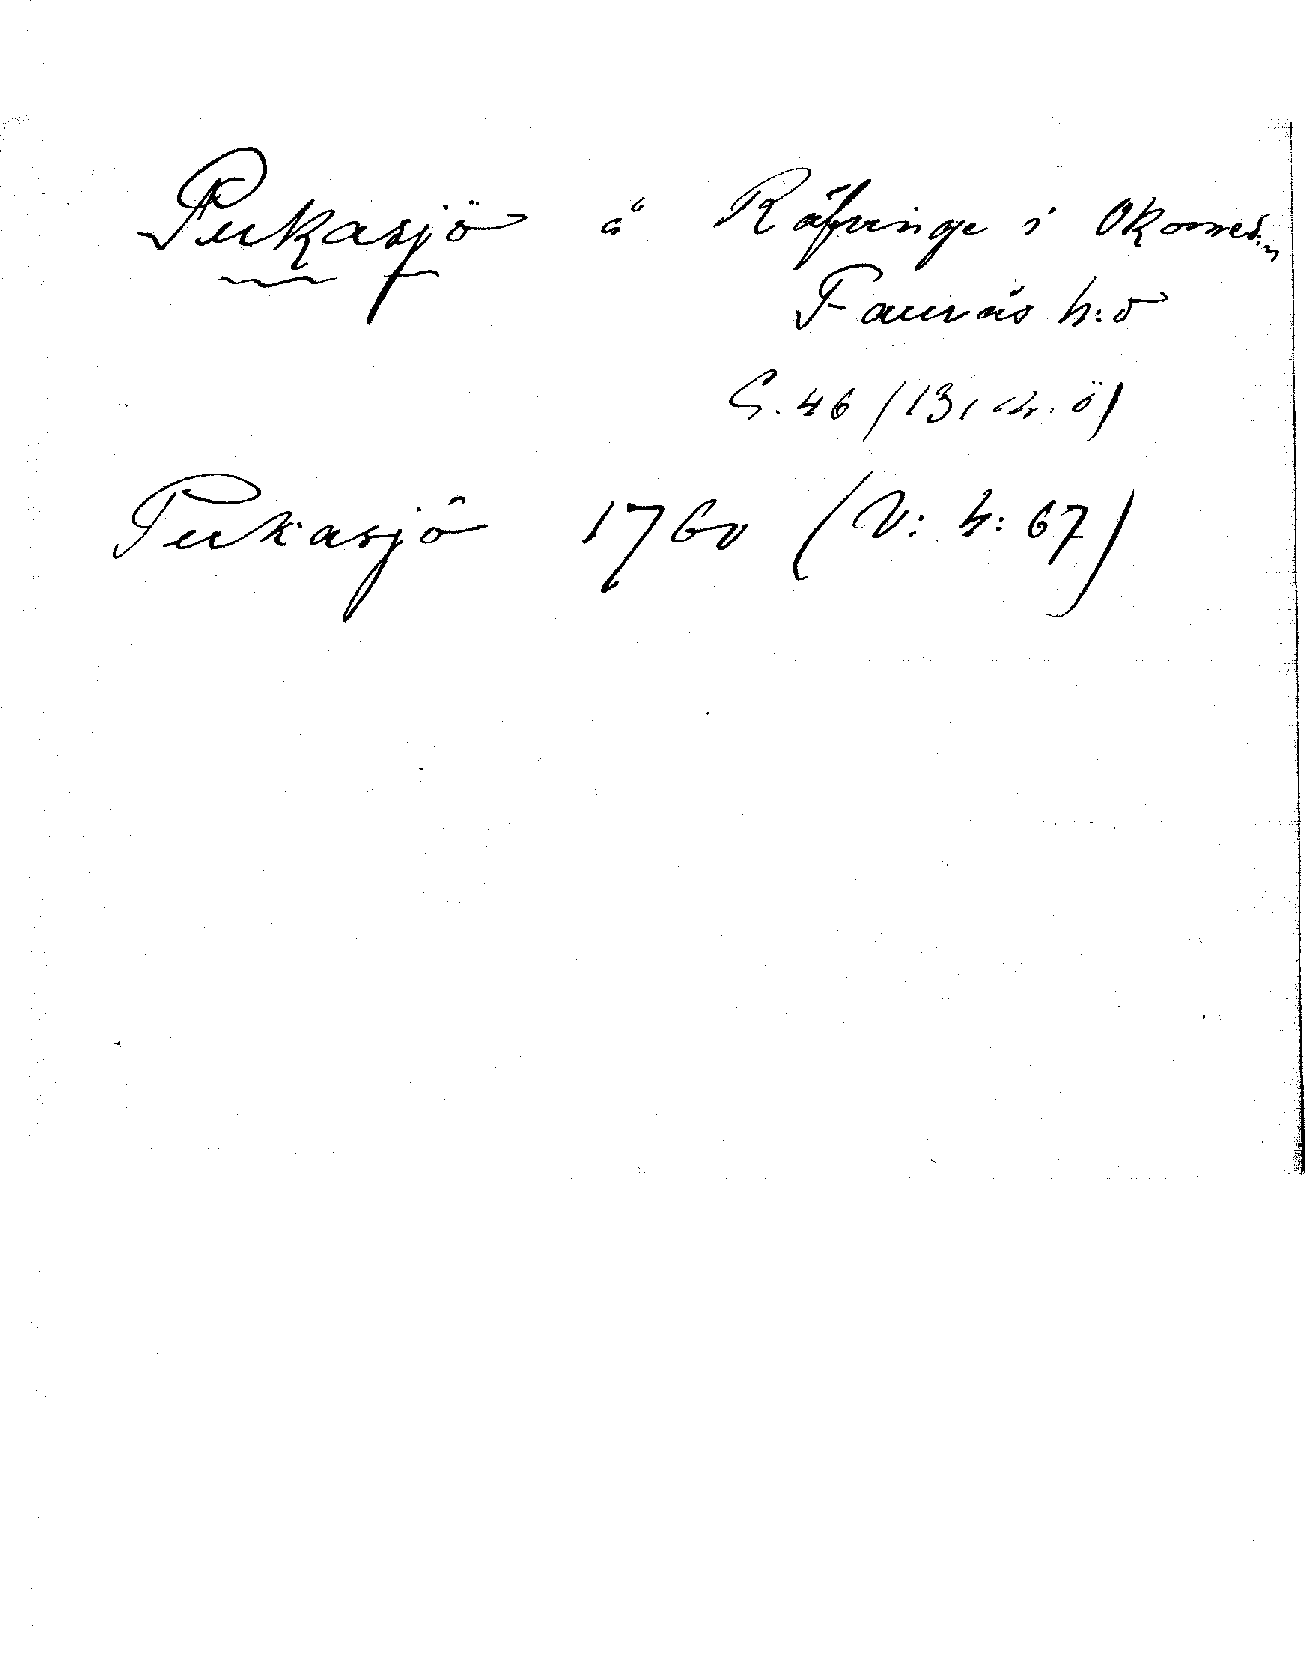 Pukasjö å Räfvinge i Okomed:n
Faurås h:d
G. 46 (13, ö)
Pukasjö 1760 (V: h: 67)